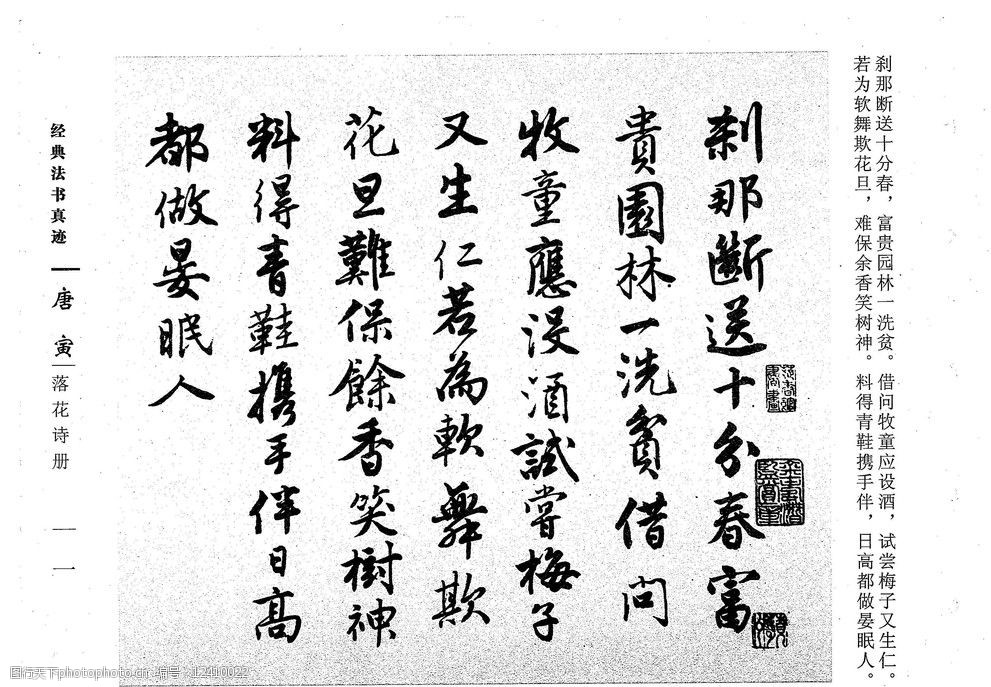 刹那断送十分春，富贵园林一洗贫。借问牧童应设酒，试尝梅子又生仁。
若为软舞欺花旦，难保余香笑树神。料得青鞋携手伴，日高都做晏眠人。
刹那斷送十分春富
貴園林一洗貧借問
牧童應没酒試嘗梅子
又生仁若為軟舞欺
花旦難保餘香笑樹神
料得青鞋携手伴日高
都做晏眠人
经典法书真迹
唐寅
落花诗册
一一
图行天下photophoto.cn 编号：12410022